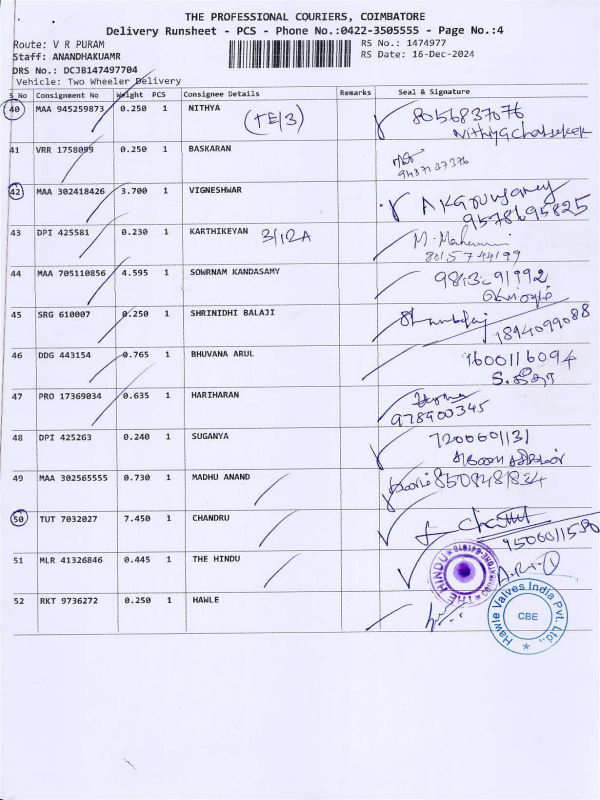 THE PROFESSIONAL COURIERS, COIMBATORE
Delivery Runsheet - PCS - Phone No.:0422-3505555 - Page No.:4
Route: V R PURAM
RS No.: 1474977
Staff: ANANDHAKUAMR
RS Date: 16-Dec-2024
DRS No.: DCJB147497704
Vehicle: Two Wheeler Delivery
S No Consignment No Weight PCS Consignee Details Remarks Seal & Signature
40 MAA 945259873 0.250 1 NITHYA 8056837076
(TE/3)
41 VRR 1758099 0.250 1 BASKARAN
9487137376
42 MAA 302418426 3.700 1 VIGNESHWAR
9578695825
43 DPI 425581 0.230 1 KARTHIKEYAN 3/12A
8815744199
44 MAA 705110856 4.595 1 SOWRNAM KANDASAMY
45 SRG 610007 0.250 1 SHRINIDHI BALAJI
1894099088
46 DDG 443154 0.765 1 BHUVANA ARUL 1600116094
47 PRO 17369034 0.635 1 HARIHARAN
978900345
48 DPI 425263 0.240 1 SUGANYA 7200601131
49 MAA 302565555 0.730 1 MADHU ANAND
50 TUT 7032027 7.450 1 CHANDRU
51 MLR 41326846 0.445 1 THE HINDU
THE HINDU
52 RKT 9736272 0.250 1 HAWLE
Hawle Valves India Pvt. Ltd.,
CBE